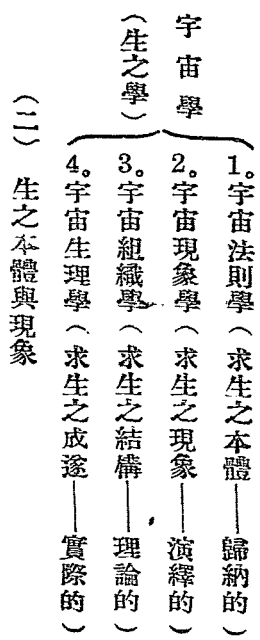 宇宙學
(生之學)
1。宇宙法則學(求生之本體——歸納的)
2。宇宙現象學(求生之現象——演繹的)
3。宇宙組織學(求生之結構——理論的)
4。宇宙生理學(求生之成遂——實際的)
(二) 生之本體與現象